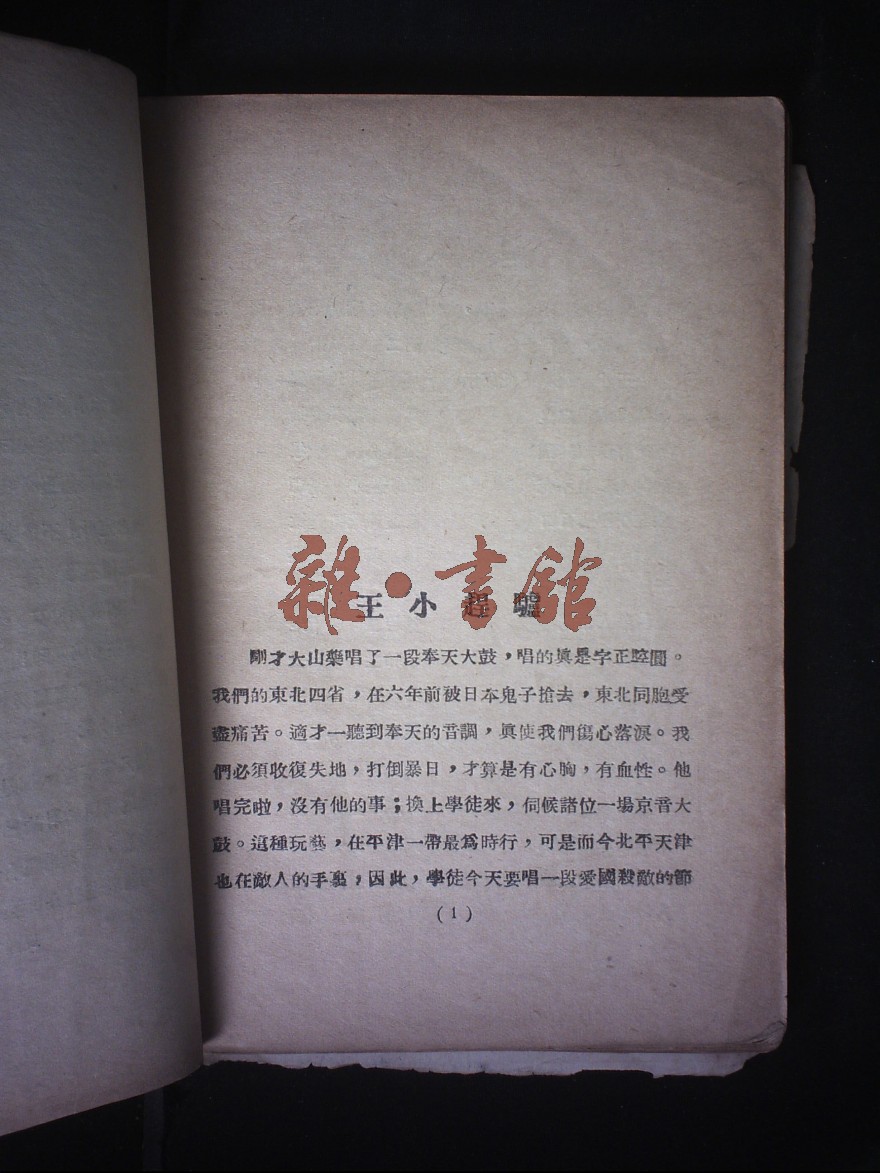 雜·書館
王小趕驢
剛才大山藥唱了一段奉天大鼓，唱的眞是字正腔圓。
我們的東北四省，在六年前被日本鬼子搶去，東北同胞受
盡痛苦。適才一聽到奉天的音調，眞使我們傷心落淚。我
們必須收復失地，打倒暴日，才算是有心胸，有血性。他
唱完啦，沒有他的事；換上學徒來，伺候諸位一場京音大
鼓。這種玩藝，在平津一帶最爲時行，可是而今北平天津
也在敵人的手裏，因此，學徒今天要唱一段愛國殺敵的節
(1)